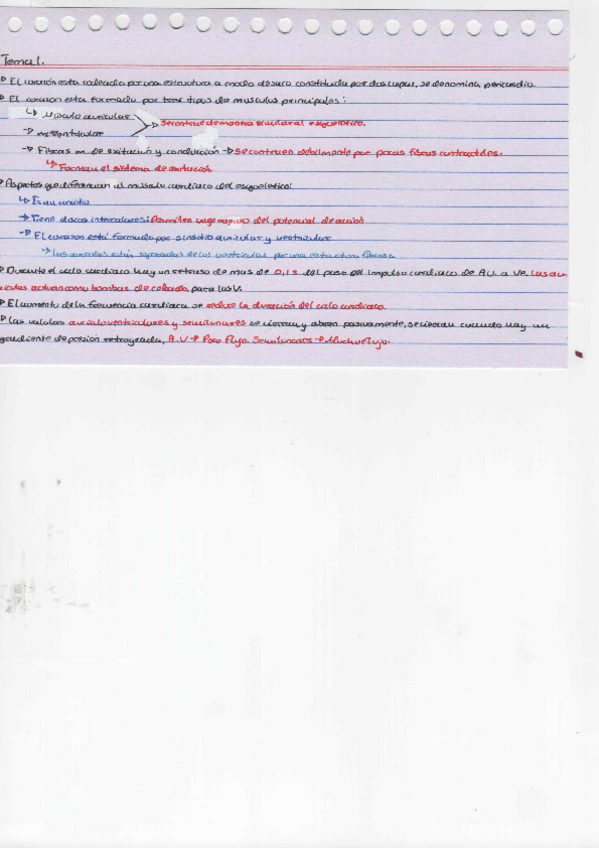 Tema 1.
El corazón esta rodeado por una estructura a modo de saco constituida por dos capas, se denomina pericardio.
El corazon esta formado por tres tipos de musculos principales:
↳ Músculo auricular
Se contrae de manera similar al esqueletico.
→ m. ventricular
→ Fibras m. de exitación y conducción → Se contraen debilmente por pocas fibras contractiles.
↳ Forman el sistema de exitación
Aspectos que diferencian al músculo cardíaco del esqueletico:
↳ Es un
→ Tiene discos intercalares: Permiten del potencial de acción
→ El corazon está formado por sinsitio auricular y ventricular
↳ Las aurículas están separadas de los ventriculos por una estructura fibrosa
Durante el ciclo cardiaco hay un retraso de mas de 0,1 s del paso del impulso cardiaco de AU. a VE, Las au-
riculas actuan como bombas de cebado, para las V.
El aumento de la frecuencia cardiaca se reduce la duración del ciclo cardiaco
Las valvulas y semilunares se cierran y abren pasivamente, se cierran cuando hay un
gradiente de presion retrograda, A.V → Poco flujo. Semilunares → Mucho flujo.